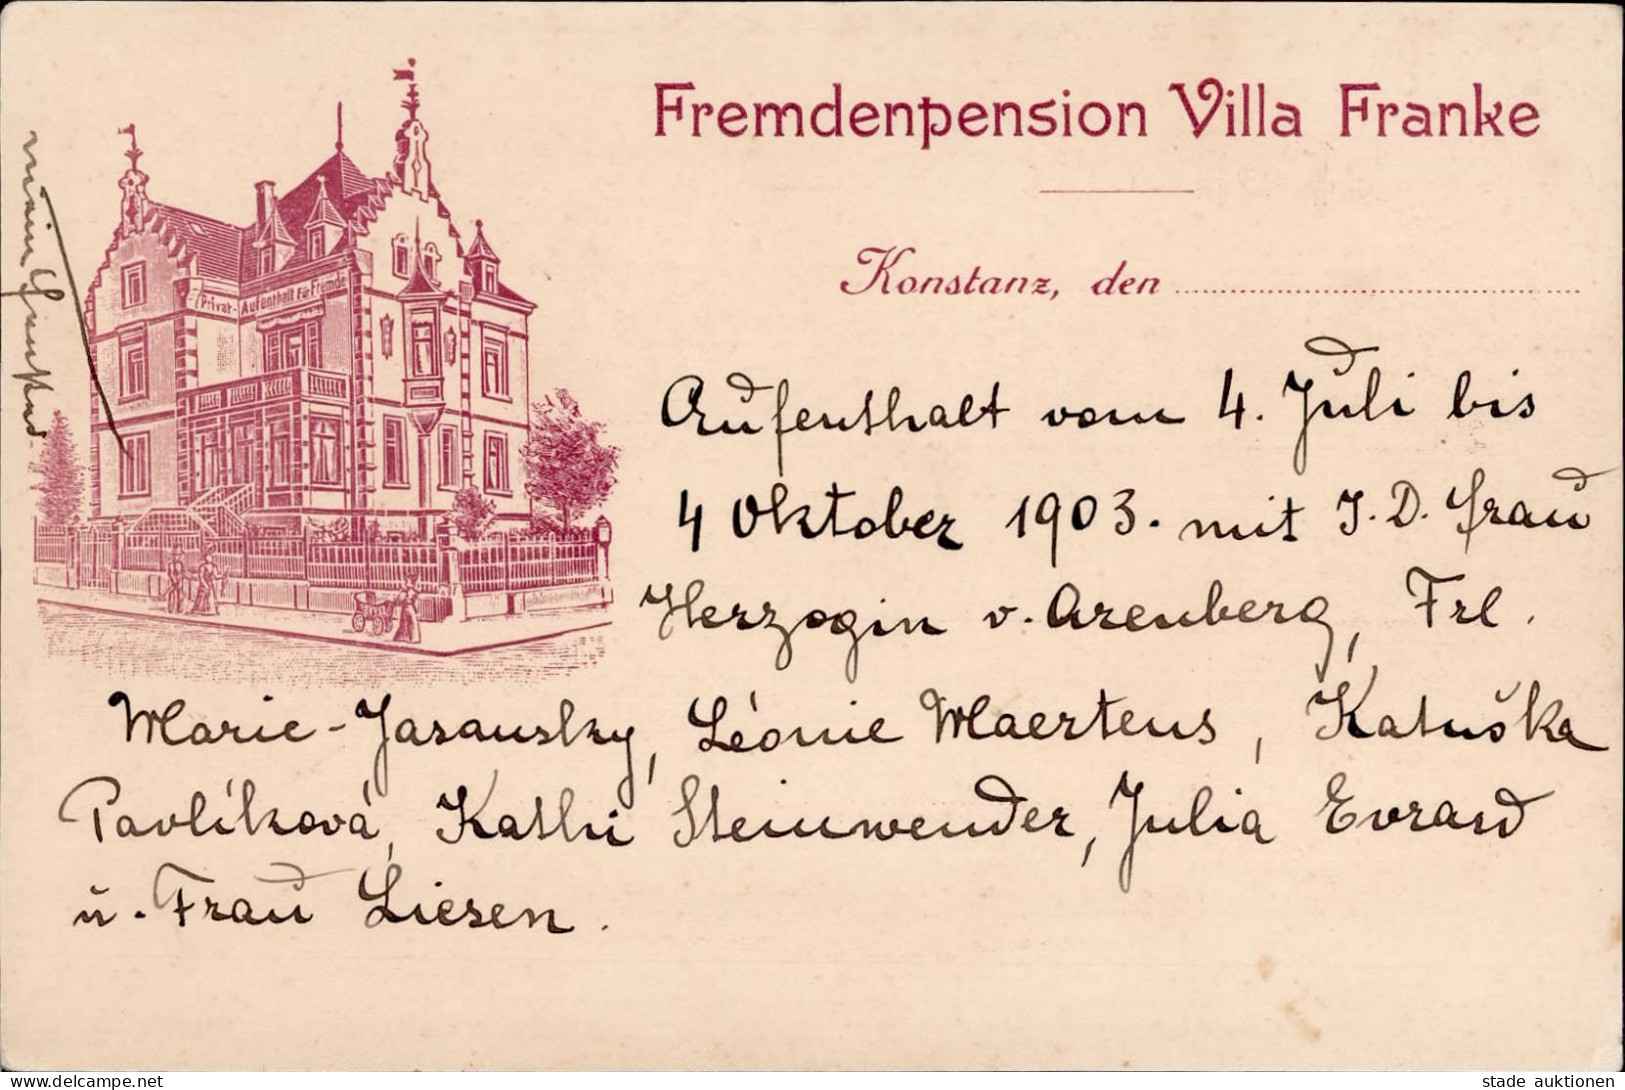 Fremdenpension Villa Franke
Konstanz, den
Privat-Aufenthalt für Fremde
mein
Aufenthalt vom 4. Juli bis
4 Oktober 1903. mit I. D. Frau
Herzogin v. Arenberg, Frl.
Marie-Jaransky, Léonie Maertens, Katuška
Pavlíková, Kathi Steinwender, Julia Evrard
u. Frau Liesen.
www.delcampe.net
stade auktionen